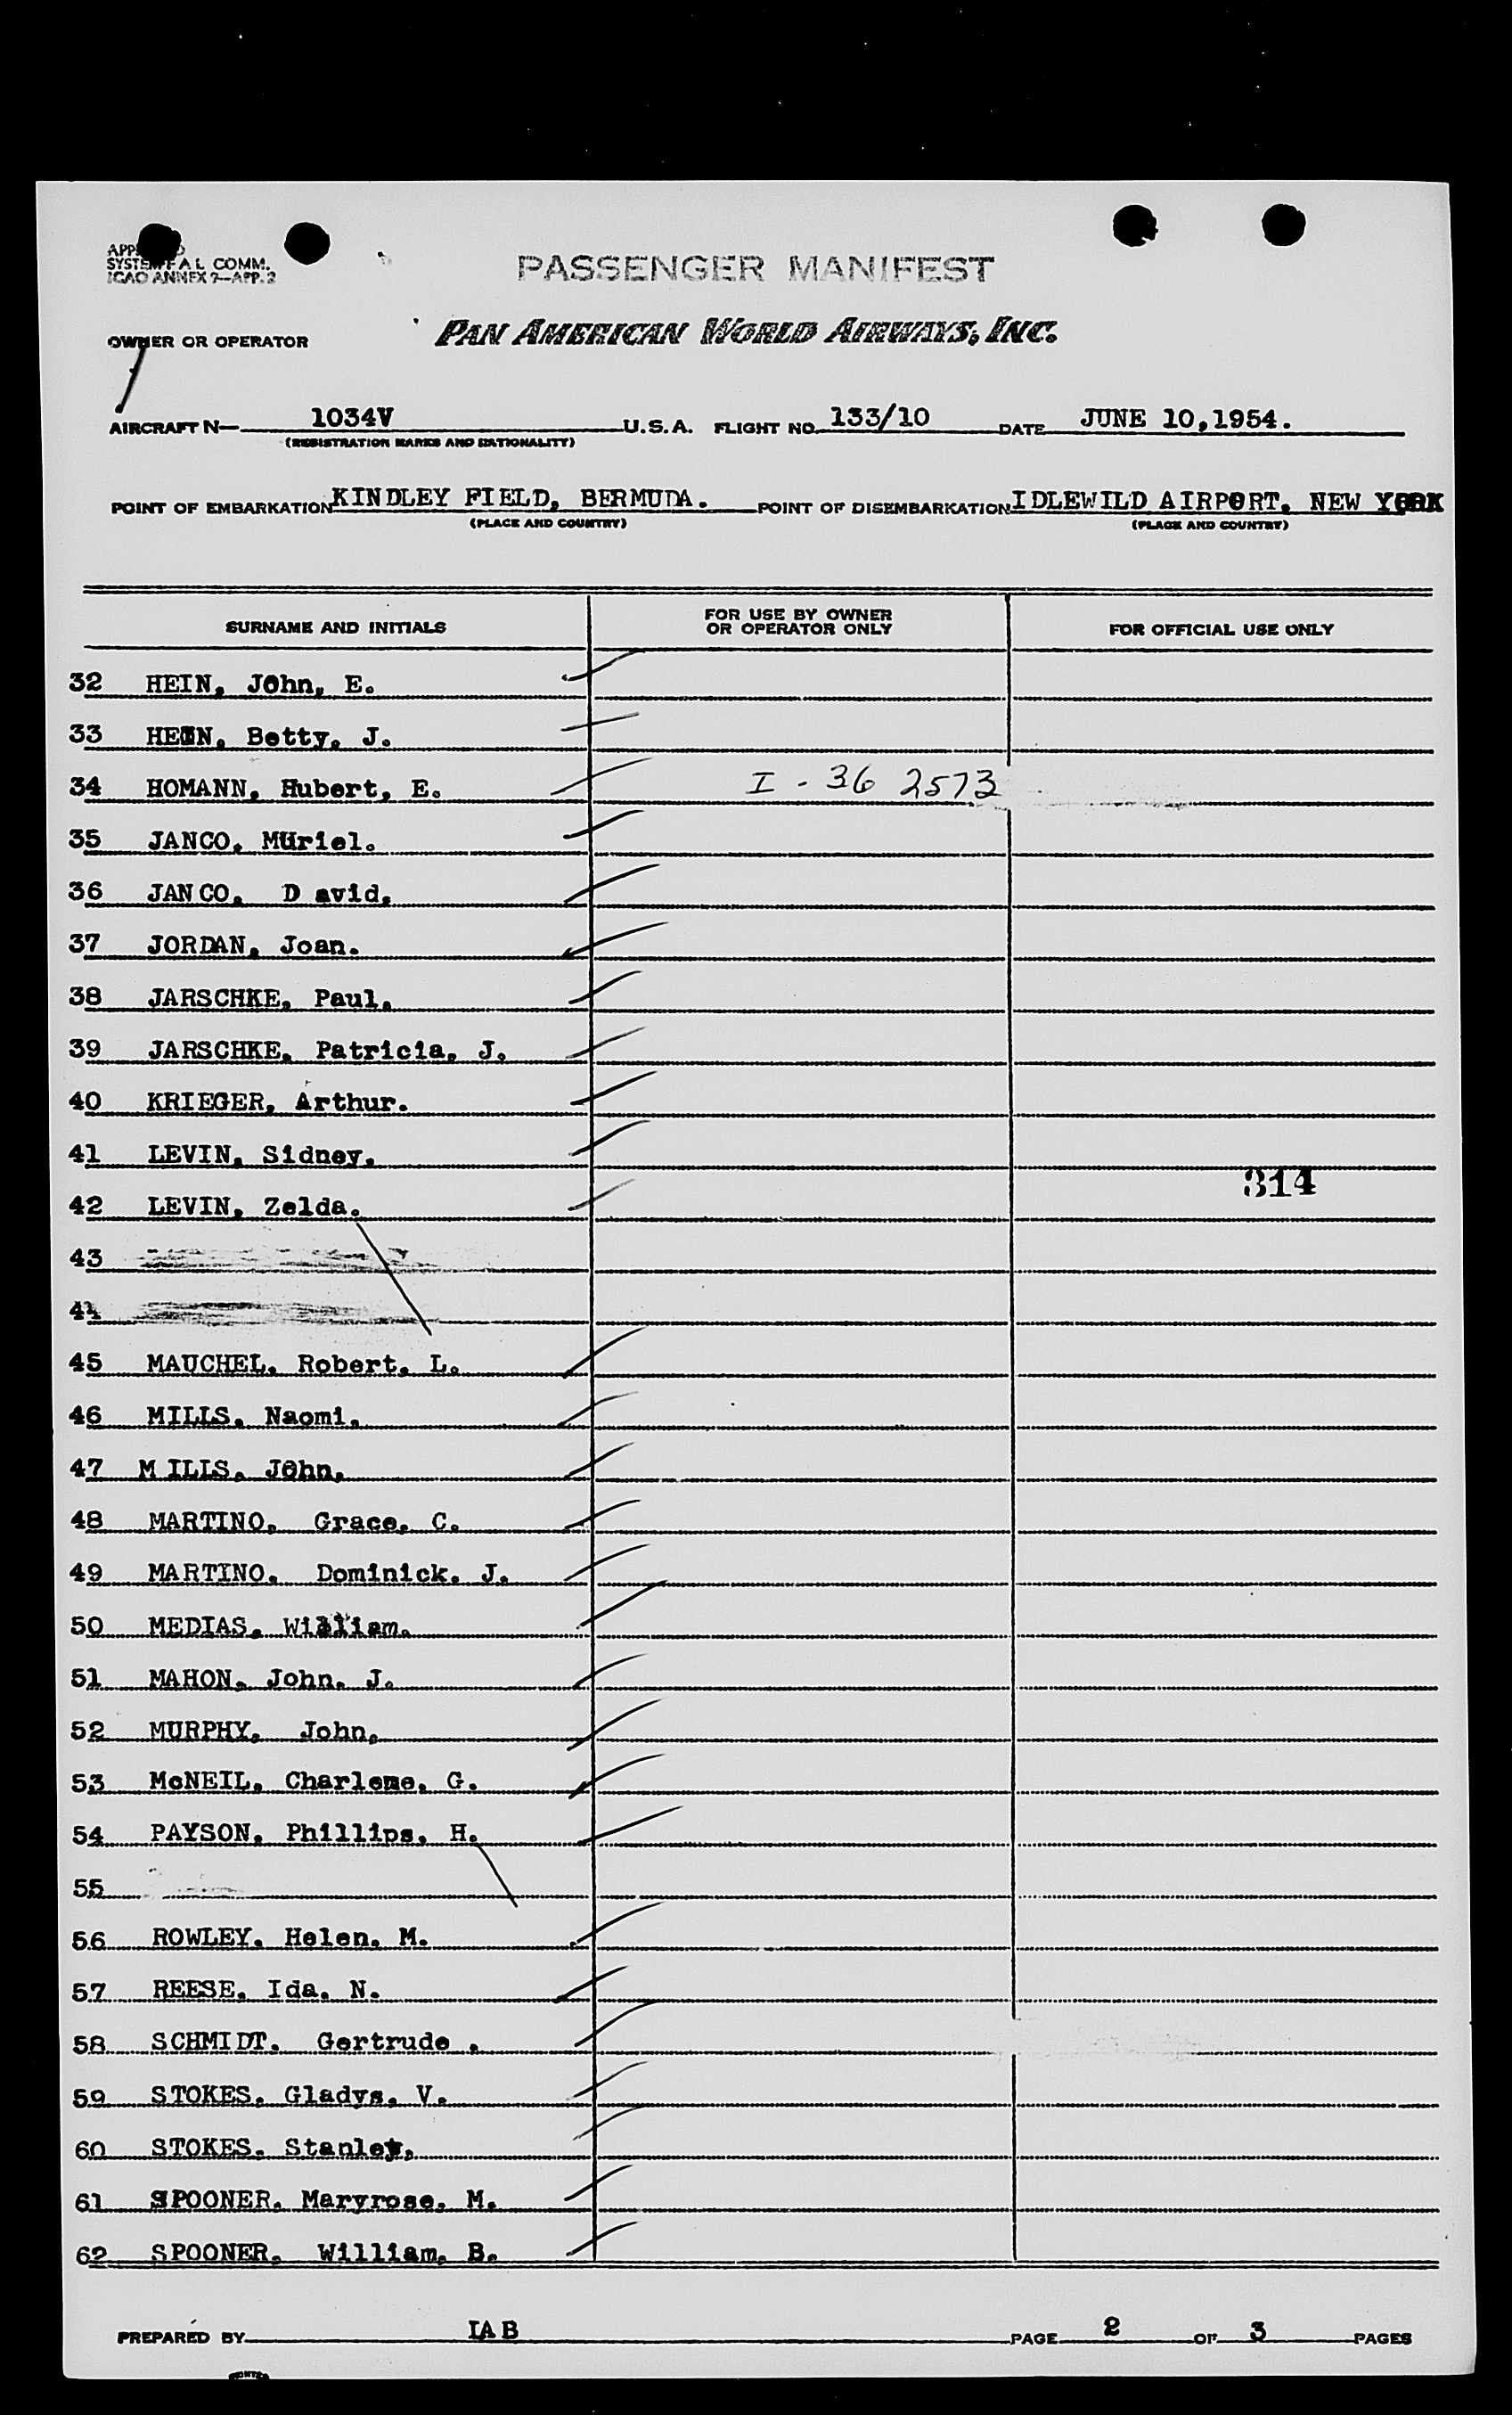 SYSTEM F A L COMM.
ICAO ANNEX 9—APP. 2
PASSENGER MANIFEST
OWNER OR OPERATOR
PAN AMERICAN WORLD AIRWAYS, INC.
AIRCRAFT N— 1034V U.S.A. FLIGHT NO. 133/10 DATE JUNE 10,1954.
(REGISTRATION MARKS AND NATIONALITY)
POINT OF EMBARKATION KINDLEY FIELD, BERMUDA. POINT OF DISEMBARKATION IDLEWILD AIRPORT, NEW YORK
(PLACE AND COUNTRY) (PLACE AND COUNTRY)
SURNAME AND INITIALS
FOR USE BY OWNER
OR OPERATOR ONLY
FOR OFFICIAL USE ONLY
32 HEIN, John, E.
33 HEIN, Betty, J.
34 HOMANN, Hubert, E. I - 36 2573
35 JANCO, Muriel.
36 JANCO, David,
37 JORDAN, Joan.
38 JARSCHKE, Paul,
39 JARSCHKE, Patricia, J.
40 KRIEGER, Arthur.
41 LEVIN, Sidney,
314
42 LEVIN, Zelda.
43
44
45 MAUCHEL, Robert, L.
46 MILLS, Naomi,
47 MILLS, John,
48 MARTINO, Grace, C.
49 MARTINO, Dominick, J.
50 MEDIAS, William,
51 MAHON, John, J.
52 MURPHY, John,
53 McNEIL, Charlene, G.
54 PAYSON, Phillips, H.
55
56 ROWLEY, Helen, M.
57 REESE, Ida, N.
58 SCHMIDT, Gertrude .
59 STOKES, Gladys, V.
60 STOKES, Stanley,
61 SPOONER, Maryrose, M.
62 SPOONER, William, B.
PREPARED BY IAB PAGE 2 OF 3 PAGES